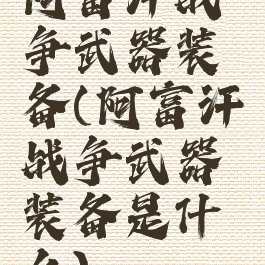 阿富汗战
争武器装
备(阿富汗
战争武器
装备是什
么)